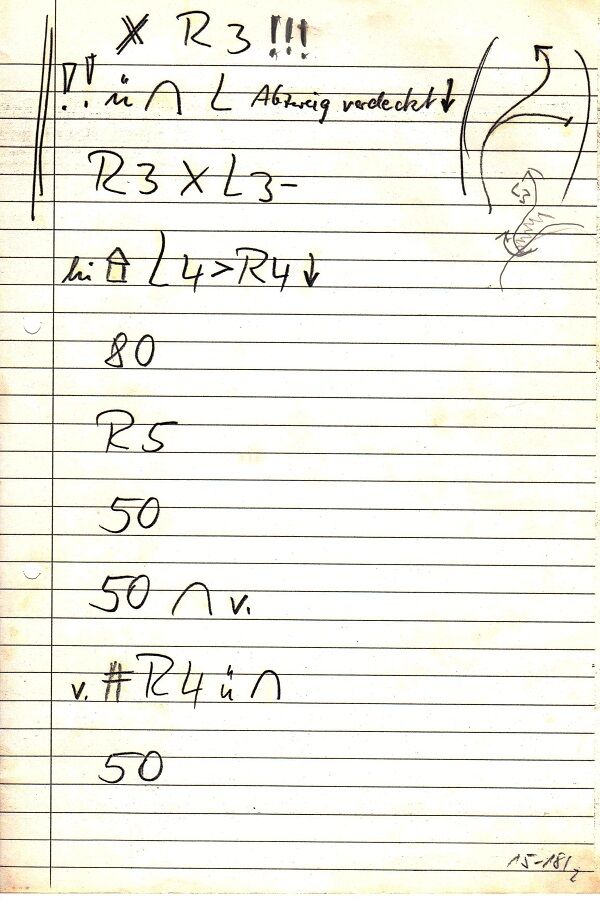 X R3 !!!
!! ü ∩ L Abzweig verdeckt ↓
R3 X L3-
hi L4 > R4 ↓
L3
80
R5
50
50 ∩ v.
v. # R4 ü ∩
50
15-18/2